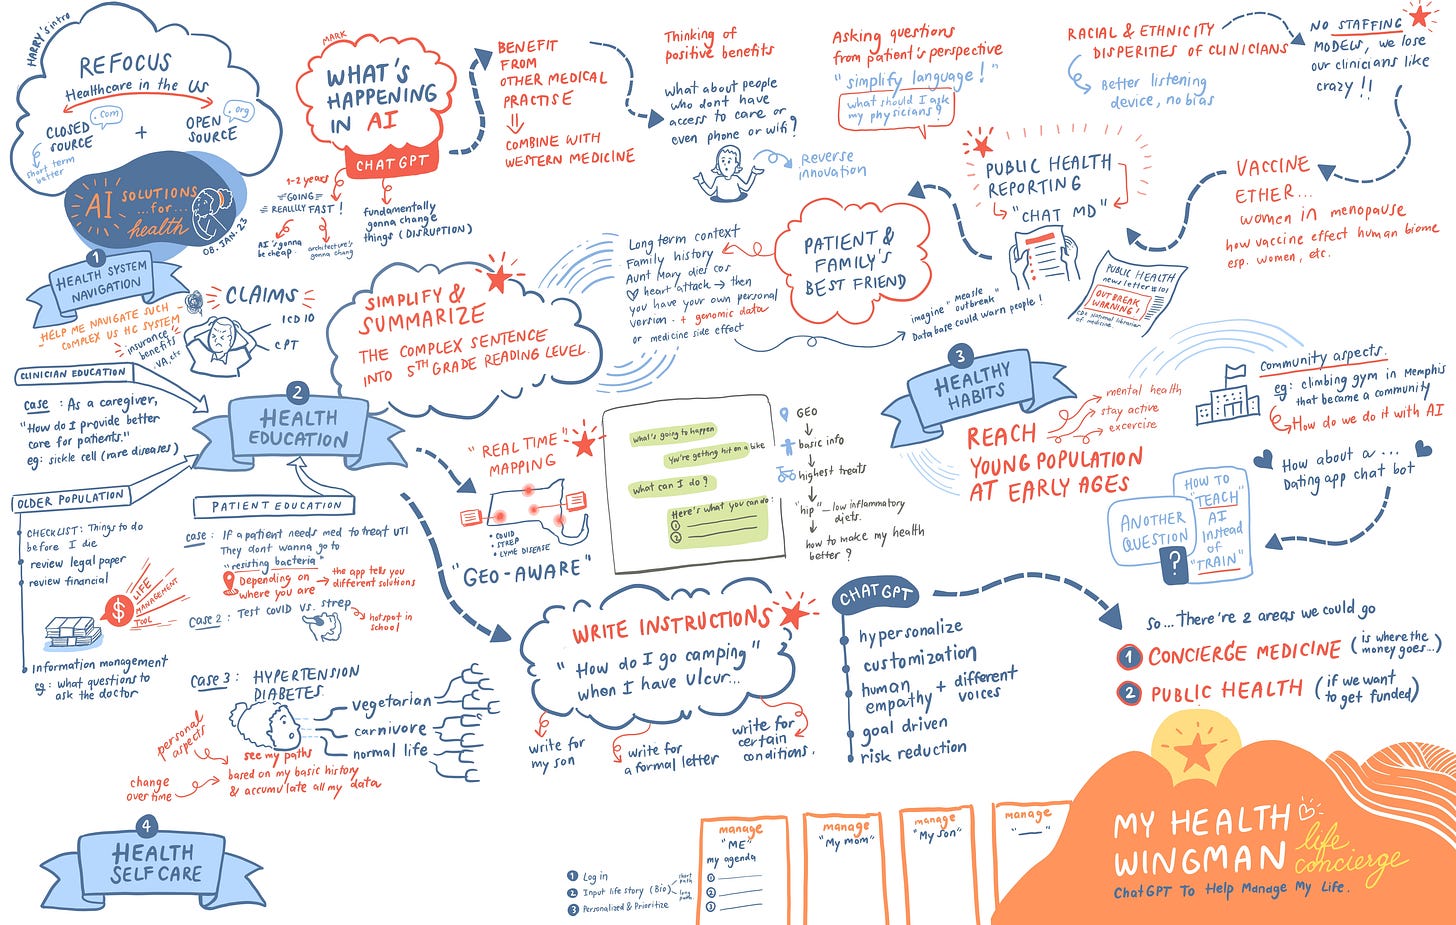 HARRY'S intro
REFOCUS
Healthcare in the US
CLOSED
SOURCE
.com
+
OPEN
SOURCE
.org
short term
better
AI SOLUTIONS
...for...
health
08.JAN.23
MARK
WHAT'S
HAPPENING
IN AI
CHATGPT
1-2 years
GOING
REALLLY FAST!
AI's gonna
be cheap
architecture's
gonna chang
fundamentally
gonna change
things (DISRUPTION)
BENEFIT
FROM
OTHER MEDICAL
PRACTISE
COMBINE WITH
WESTERN MEDICINE
Thinking of
positive benefits
what about people
who dont have
access to care or
even phone or wifi?
Reverse
innovation
Asking questions
from patient's perspective
"simplify language!"
what should I ask
my physicians?
RACIAL & ETHNICITY
DISPERITIES OF CLINICIANS
Better listening
device, no bias
NO STAFFING
MODELS, we lose
our clinicians like
crazy!!
VACCINE
ETHER...
women in menopause
how vaccine effect human biome
esp. women, etc.
PUBLIC HEALTH
REPORTING
"CHAT MD"
PUBLIC HEALTH
newsletter #101
OUTBREAK
WARNING!
CDC National librarian
of medicine.
imagine "measle
outbreak"
Database could warn people!
PATIENT &
FAMILY'S
BEST FRIEND
Long term context
Family history
Aunt Mary dies cos
heart attack → then
you have your own personal
version + genomic data
or medicine side effect
1
HEALTH SYSTEM
NAVIGATION
HELP ME NAVIGATE SUCH
COMPLEX US HC SYSTEM
CLAIMS
ICD 10
CPT
insurance
benefits
VA, etc
SIMPLIFY &
SUMMARIZE
THE COMPLEX SENTENCE
INTO 5TH GRADE READING LEVEL.
CLINICIAN EDUCATION
case: As a caregiver,
"How do I provide better
care for patients."
eg: sickle cell (rare diseases)
2
HEALTH
EDUCATION
OLDER POPULATION
CHECKLIST: Things to do
before I die
review legal paper
review financial
$
LIFE
MANAGEMENT
TOOL
Information management
eg: what questions to
ask the doctor
PATIENT EDUCATION
case: If a patient needs med to treat UTI
They dont wanna go to
"resisting bacteria"
Depending on
where you are
→ the app tells you
different solutions
Case 2: Test covid vs. strep
hotspot in
school
Case 3: HYPERTENSION
DIABETES
personal
aspects
see my paths
based on my basic history
& accumulate all my data
change
over time
vegetarian
carnivore
normal life
"REAL TIME"
MAPPING
COVID
STREP
LYME DISEASE
"GEO-AWARE"
what's going to happen
You're getting hit on a bike
what can I do?
Here's what you can do:
1
2
GEO
basic info
highest treats
"hip" — low inflammatory
diets.
how to make my health
better?
3
HEALTHY
HABITS
mental health
stay active
excercise
REACH
YOUNG POPULATION
AT EARLY AGES
Community aspects.
eg: climbing gym in Memphis
that became a community
How do we do it with AI
How about a...
Dating app chat bot
ANOTHER
QUESTION
?
HOW TO
"TEACH"
AI
instead
of
"TRAIN"
WRITE INSTRUCTIONS
"How do I go camping"
when I have ulcur...
write for
my son
write for
a formal letter
write for
certain
conditions.
CHATGPT
hypersonalize
customization
human
empathy + different
voices
goal driven
risk reduction
so... There're 2 areas we could go
1 CONCIERGE MEDICINE (is where the
money goes...)
2 PUBLIC HEALTH (if we want
to get funded)
4
HEALTH
SELF CARE
1 Log in
2 Input life story (Bio)
short
path
long
path.
3 Personalized & Prioritize
manage
"ME"
my agenda
1
2
3
manage
"My mom"
manage
"My son"
manage
"___"
MY HEALTH
WINGMAN
life
concierge
ChatGPT To Help Manage My Life.